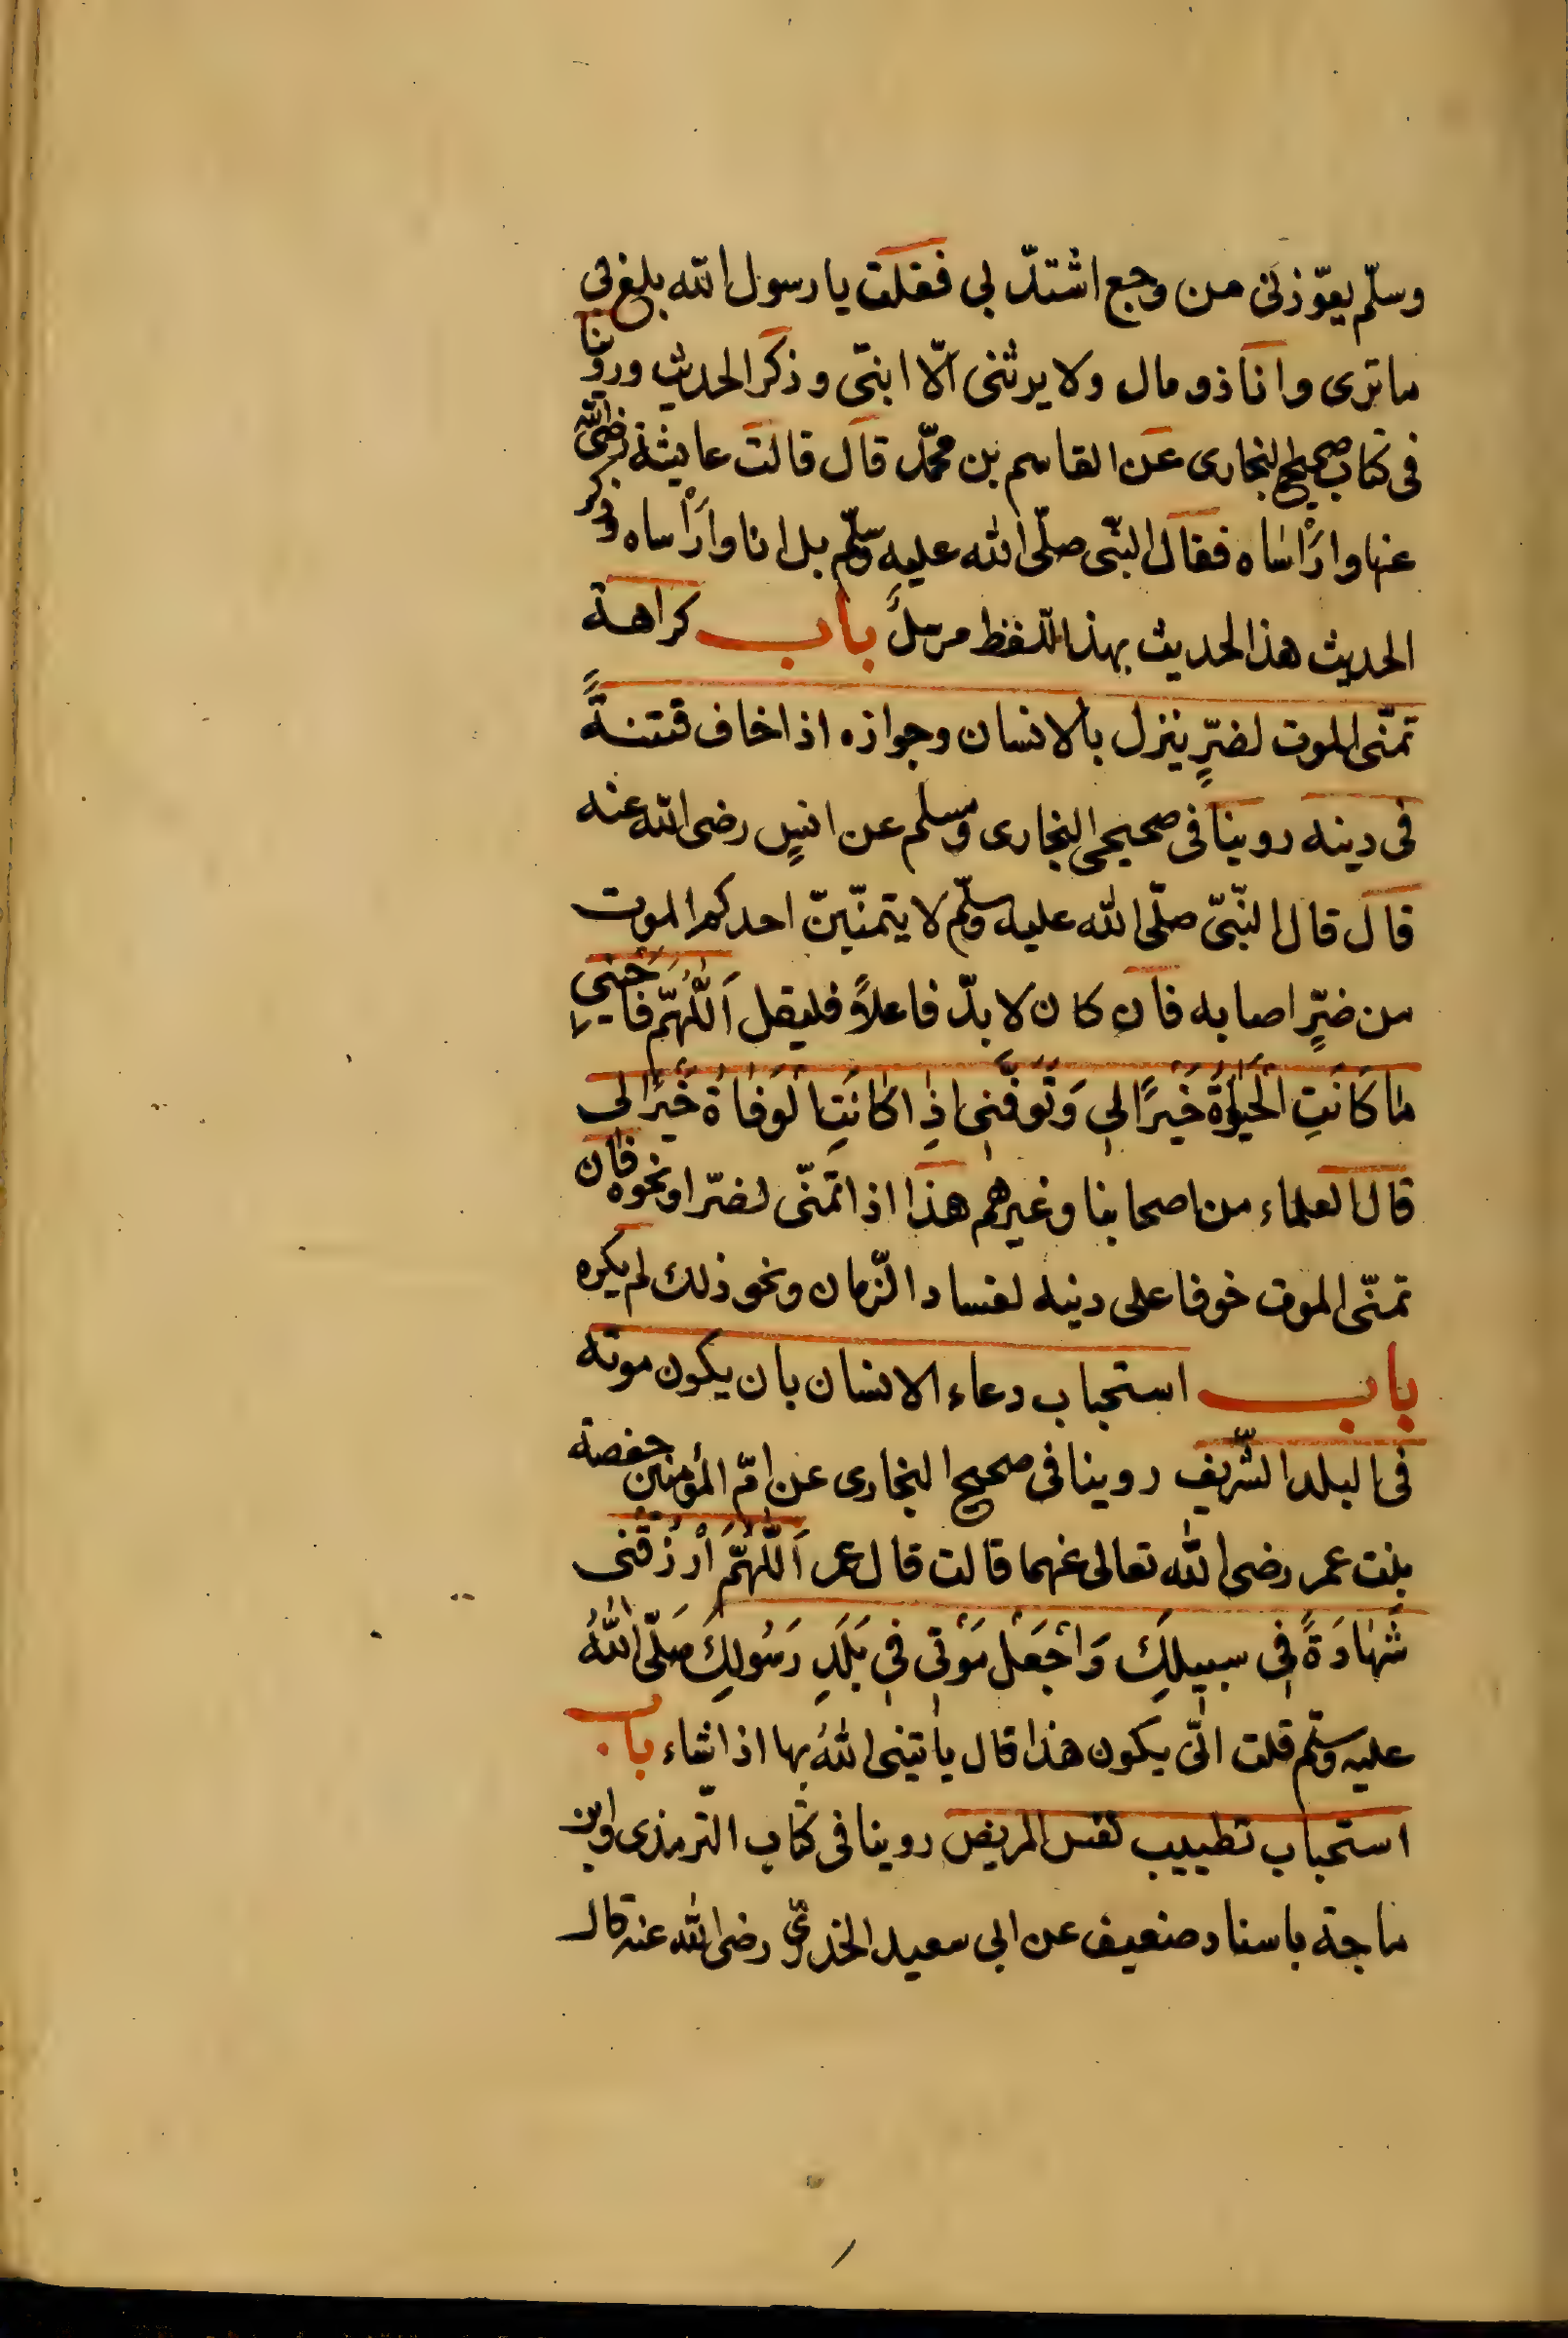 وسلّم يعوّذنى من وجع اشتدّ بى فقلت يا رسول الله بلغ بى
ما ترى وانا ذو مال ولا يرثنى الّا ابنتى وذكر الحديث وروينا
فى كتاب صحيح البخارى عن القاسم بن محمّد قال قالت عايشة رضى الله
عنها وارَأْساه فقال النبّى صلّى الله عليه وسلّم بل انا وارَأْساه وذكر
الحديث هذا الحديث بهذا اللّفظ مرسلً باب كراهة
تمنّى الموت لضرٍّ ينزل بالانسان وجوازه اذا خاف فتنةً
فى دينه روينا فى صحيحى البخارى ومسلم عن انسٍ رضى الله عنه
قال قال النبّىّ صلّى الله عليه وسلّم لا يتمنّينّ احدكم الموت
من ضرٍّ اصابه فان كان لا بدّ فاعلاً فليقل اَللّٰهُمَّ فاَحْيِنى
مٰا كَانَتِ الْحَيٰوةُ خَيْرًا لىِ وَتَوَفَّنىِ اِذٰا كٰانَتِ الْوَفٰاةُ خَيْرًا لى
قال العلماء من اصحابنا وغيرهم هذا اذا تمنّى لضرّ او نحوه فان
تمنّى الموت خوفا على دينه لفساد الزّمان ونحو ذلك لم يكره
باب استحباب دعاء الانسان بان يكون موته
فى البلد الشّريف روينا فى صحيح البخارى عن امّ المؤمنين حفصة
بنت عمر رضى الله تعالى عنهما قالت قال عمر اَللّٰهُمَّ اْرْزُقْنى
شَهٰادَةً فىِ سبيلِكَ وَاْجْعَلْ مَوْتىِ فىِ بَلَدِ رَسُولِكَ صَلّى اللّٰهُ
عليه وسلّم قلت انّى يكون هذا قال يأتينى اللهُ بها اذا شاء باب
استحباب تطييب نفس المريض روينا فى كتاب التّرمذى وابن
ماجة باسناد ضعيف عن ابى سعيد الخدرىّ رضى الله عنه قال